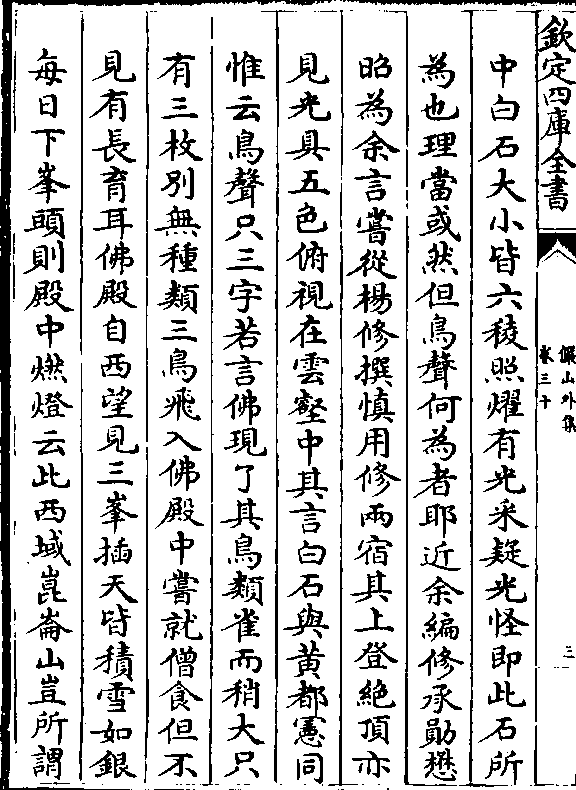 欽定四庫全書
儼山外集
卷三十
三
中白石大小皆六稜照燿有光采疑光怪即此石所
為也理當或然但鳥聲何為者耶近余編修承勛懋
昭為余言嘗從楊修撰慎用修兩宿其上登絶頂亦
見光具五色俯視在雲壑中其言白石與黄都憲同
惟云鳥聲只三字若言佛現了其鳥類雀而稍大只
有三枚别無種類三鳥飛入佛殿中嘗就僧食但不
見有長育耳佛殿自西望見三峯插天皆積雪如銀
每日下峯頭則殿中燃燈云此西域崑崙山豈所謂